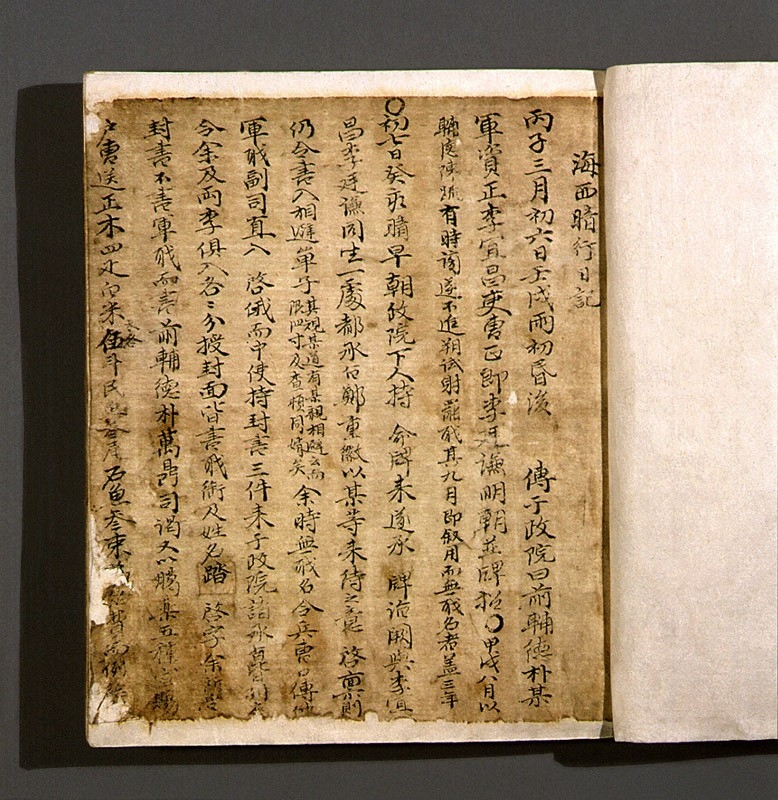 海西暗行日記
丙子三月初六日壬戌雨初昏後 傳于政院曰前輔德朴某
軍資正李宜昌吏曹正郎李廷謙明朝並牌招〇甲戌八月以
輔德陳疏有時諱遂不進朔試射罷職其九月卽叙用而無職名者蓋三年
〇初七日癸亥晴早朝政院下人持 命牌来遂承 牌詣闕與李宜
昌李廷謙同坐一處都承旨鄭重徽以某等来待之意 啓稟則
仍令書入相避單子其親某道有某親相避云而限四寸及査頓同婿矣余時無職名令兵曹口傳付
軍職副司直入 啓俄而中使持封書三件来于政院請承旨
令余及兩李俱入各々分授封面皆書職銜及姓名踏 啓字余
封書不書軍職而書前輔德朴萬鼎司謁又以賜某五種
戶曹送正木四疋白米伍斗民魚叁尾石魚叁束